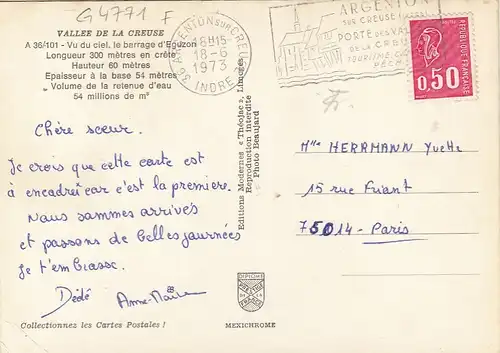 G4771 F
VALLEE DE LA CREUSE
A 36/101 - Vu du ciel, le barrage d'Eguzon
Longueur 300 mètres en crête
Hauteur 60 mètres
Epaisseur à la base 54 mètres
Volume de la retenue d'eau
54 millions de m³
36 ARGENTON SUR CREUSE
16H15
18-6
1973
INDRE
ARGENTON
SUR CREUSE
PORTE DES
DE LA CREUSE
0,50
Chère sœur.
Je crois que cette carte est
à encadrer car c'est la première.
Nous sommes arrivés
et passons de belles journées
je t'embrasse.
Dédé Anne-Marie
Editions Modernes « Théojac », Limoges
Reproduction interdite
Photo Beaujard
Mlle HERRMANN Yvette
15 rue Friant
75014 - Paris
DEPOSE
Collectionnez les Cartes Postales !
MEXICHROME